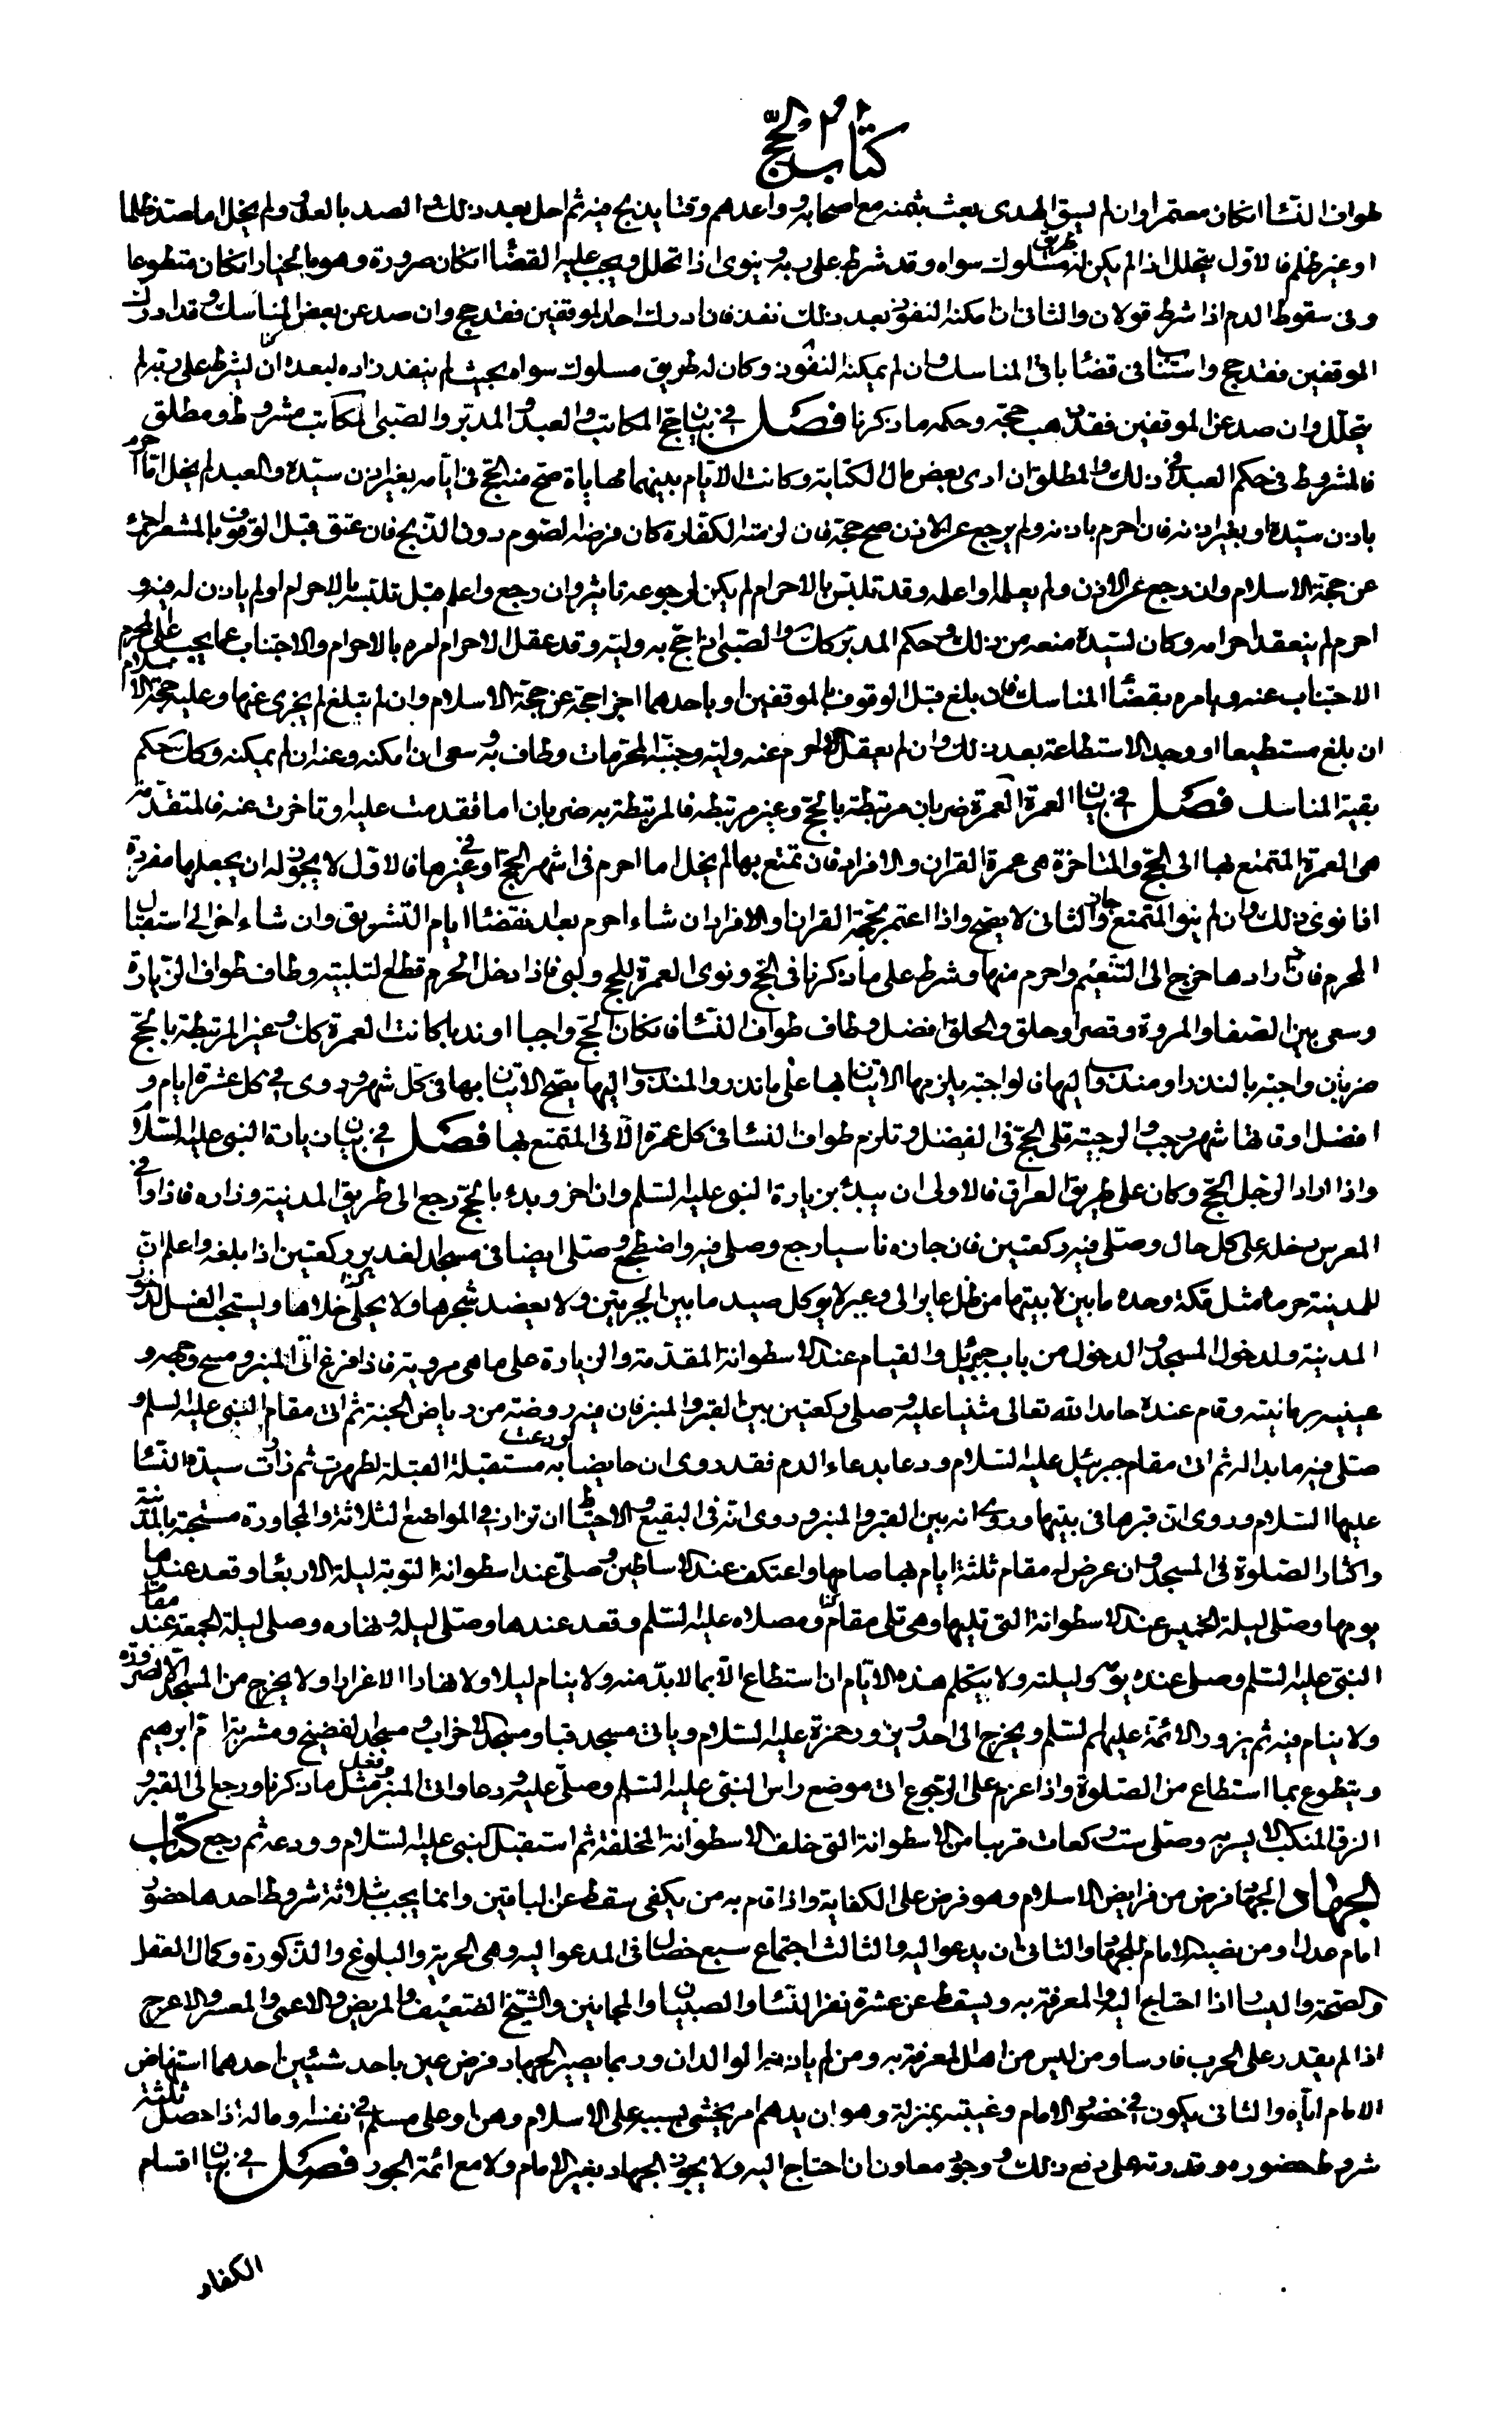 كتاب الحج
طواف النساء ان كان معتمرا وان لم يسق الهدى بعث بثمنه مع اصحابه و واعدهم وقتا يذبح فيه ثم احل بعد ذلك الصد بالعدو ولم يخل اما صد ظلما
او غير ظلم فالاول يتحلل اذا لم يكن له طريق مسلوك سواه وقد شرط على ربه وينوى اذا تحلل ويجب عليه القضاء ان كان صرورة وهو بالخيار ان كان متطوعا
وفى سقوط الدم اذا شرط قولان والثانى ان امكنه النفوذ بعد ذلك نفذ فان ادرك احد الموقفين فقد حج وان صد عن بعض المناسك وقد ادرك
الموقفين فقد حج واستناب فى قضاء باقى المناسك وان لم يمكنه النفوذ وكان له طريق مسلوك سواه بحيث لم ينفد زاده لبعده ان لم يشرط على ربه لم
يتحلل وان صد عن الموقفين فقد ذهب حجه وحكمه ما ذكرنا فصل فى بيان حج المكاتب والعبد والمدبر والصبى المكاتب مشروط ومطلق
فالمشروط فى حكم العبد فى ذلك والمطلق ان ادى بعض مال الكتابة وكانت الايام بينهما مهاياة صح منه الحج فى ايامه بغير اذن سيده والعبد لم يخل اما احرم
باذن سيده او بغير اذنه فان احرم باذنه ولم يرجع عن الاذن صح حجه فان لزمته الكفارة كان فرضه الصوم دون الذبح فان عتق قبل الوقوف بالمشعر اجزأ
عن حجة الاسلام وان رجع عن الاذن ولم يعلم او اعلمه وقد تلبس بالاحرام لم يكن لرجوعه تاثير وان رجع واعلم قبل تلبسه بالاحرام او لم ياذن له فيه و
احرم لم ينعقد احرامه وكان لسيده منعه من ذلك وحكم المدبر كذلك والصبى اذا حج به وليه وقد عقل الاحرام امره بالاحرام والاجتناب عما يجب على المحرم
الاجتناب عنه ويامره بقضاء المناسك فان بلغ قبل الوقوف بالموقفين او باحدهما اجزا حجه عن حجة الاسلام وان لم يبلغ لم يجزى عنها وعليه حجة الاسلام
ان بلغ مستطيعا او وجد الاستطاعة بعد ذلك وان لم يعقل الاحرام احرم عنه وليه وجنبه المحرمات وطاف به وسعى ان امكنه وعنه ان لم يمكنه وكذلك حكم
بقية المناسك فصل فى بيان العمرة العمرة ضربان مرتبطة بالحج وغير مرتبطه فالمرتبطة به ضربان اما تقدمت عليه او تاخرت عنه فالمتقدمة
هى العمرة المتمتع بها الى الحج والمتاخرة هى عمرة القران والافراد فان تمتع بها لم يخل اما احرم فى اشهر الحج او فى غيرها فالاول لا يجوز له ان يجعلها مفردة
اذا نوى ذلك وان لم ينو المتمتع جاز والثانى لا يصح واذا اعتمر بحجة القران او الافراد ان شاء احرم بعد انقضاء ايام التشريق وان شاء اخر الى استقبال
المحرم فان ارادها خرج الى التنعيم واحرم منها وشرط على ما ذكرنا فى الحج ونوى العمرة للحج ولبى فاذا دخل الحرم قطع التلبية وطاف طواف الزيارة
وسعى بين الصفا والمروة وقصر او حلق والحلق افضل وطاف طواف النساء فان كان الحج واجبا او ندبا كانت العمرة كذلك وغير المرتبطة بالحج
ضربان واجبة بالنذر او مندوب اليها فالواجبة يلزمها الاتيان بها على ما نذر والمندوب اليها يصح الاتيان بها فى كل شهر وروى فى كل عشرة ايام و
افضل اوقاتها شهر رجب والرجبية تلى الحج فى الفضل وتلزم طواف النساء فى كل عمرة الا فى المتمتع بها فصل فى بيان زيارة النبى عليه السلام
واذا اراد الرجل الحج وكان على طريق العراق فالاولى ان يبدء بزيارة النبى عليه السلم وان اخر وبدء بالحج رجع الى طريق المدينة وزاره فاذا وافى
المعرس دخله على كل حال وصلى فيه ركعتين فان جازه ناسيا رجع وصلى فيه واضطجع وصلى ايضا فى مسجد الغدير ركعتين اذا بلغه واعلم ان
للمدينة حرما مثل مكة وحده ما بين لابيتها من ظل عاير الى وعير لا يوكل صيد ما بين الحريتين ولا يعضد شجرها ولا يختلى خلاها ويستحب الغسل لدخول
المدينة ولدخول المسجد والدخول من باب جبرئيل والقيام عند الاسطوانة المقدمة والزيارة على ما هى مروية فاذا فرغ اتى المنبر ومسح وجهه و
عينيه برمانيته وقام عنده حامدا لله تعالى مثنيا عليه وصلى ركعتين بين القبر والمنبر فان فيه روضة من رياض الجنة ثم اتى مقام النبى عليه السلم و
صلى فيه ما بدا له ثم اتى مقام جبرئيل عليه السلام ودعا بدعاء الدم فقد روى ان حايضا لو دعت به مستقبلة القبلة لطهرت ثم زارت سيدة النساء
عليها السلام وروى ان قبرها فى بيتها وروى انه بين القبر والمنبر وروى انه فى البقيع والاحتياط ان تزار فى المواضع الثلاثة والمجاورة مستحبة بالمدينة
واكثار الصلوة فى المسجد وان عرض له مقام ثلثة ايام بها صامها واعتكف عند الاساطين وصلى عند اسطوانة التوبة ليلة الاربعاء وقعد عندها
يومها وصلى ليلة الخميس عند الاسطوانة التى تليها وهى تلى مقام ومصلاه عليه السلم وقعد عندها وصلى ليله ونهاره وصلى ليلة الجمعة عند مقام
النبى عليه السلم وصلى عنده يومه وليلته ولا يتكلم هذه الايام ان استطاع الا بما لا بد منه ولا ينام ليلا ولا نهارا الا غرارا ولا يخرج من المسجد الا لضرورة
ولا ينام فيه ثم يزور الائمة عليهم السلم ويخرج الى احد ويزور حمزة عليه السلام وياتى مسجد قبا ومسجد الاحزاب ومسجد الفضيخ ومشربة ام ابرهيم
ويتطوع بما استطاع من الصلوة واذا عزم على الرجوع اتى موضع راس النبى عليه السلم وصلى عليه ودعا واتى المنبر وفعل مثل ما ذكرنا ورجع الى القبر و
الزق المنكب الايسر به وصلى ست ركعات قريبا من الاسطوانة التى خلف الاسطوانة المخلقة ثم استقبل النبى عليه السلام وودعه ثم رجع كتاب
الجهاد الجهاد فرض من فرايض الاسلام وهو فرض على الكفاية واذا قام به من يكفى سقط عن الباقين وانما يجب بثلاثة شروط احدها حضور
امام عدل او من نصبه الامام للجهاد والثانى ان يدعو اليه والثالث اجتماع سبع خصال فى المدعو اليه وهى الحرية والبلوغ والذكورة وكمال العقل
والصحة واليسار اذا احتاج اليه والمعرفة به ويسقط عن عشرة نفر النساء والصبيان والمجانين والشيخ الضعيف والمريض والاعمى والمعسر والاعرج
اذا لم يقدر على الحرب فارسا ومن ليس من اهل المعرفة به ومن لم ياذن له الوالدان وربما يصير الجهاد فرض عين باحد شيئين احدهما استنهاض
الامام اياه والثانى يكون فى حضور الامام وغيبته بمنزلة وهو ان يدهم امر يخشى بسببه على الاسلام وهن او على مسلم فى نفسه وماله اذا حصل ثلثة
شروط حضوره وقدرته على دفع ذلك ووجود معاون ان احتاج اليه ولا يجوز الجهاد بغير الامام ولا مع ائمة الجور فصل فى بيان اقسام
الكفار